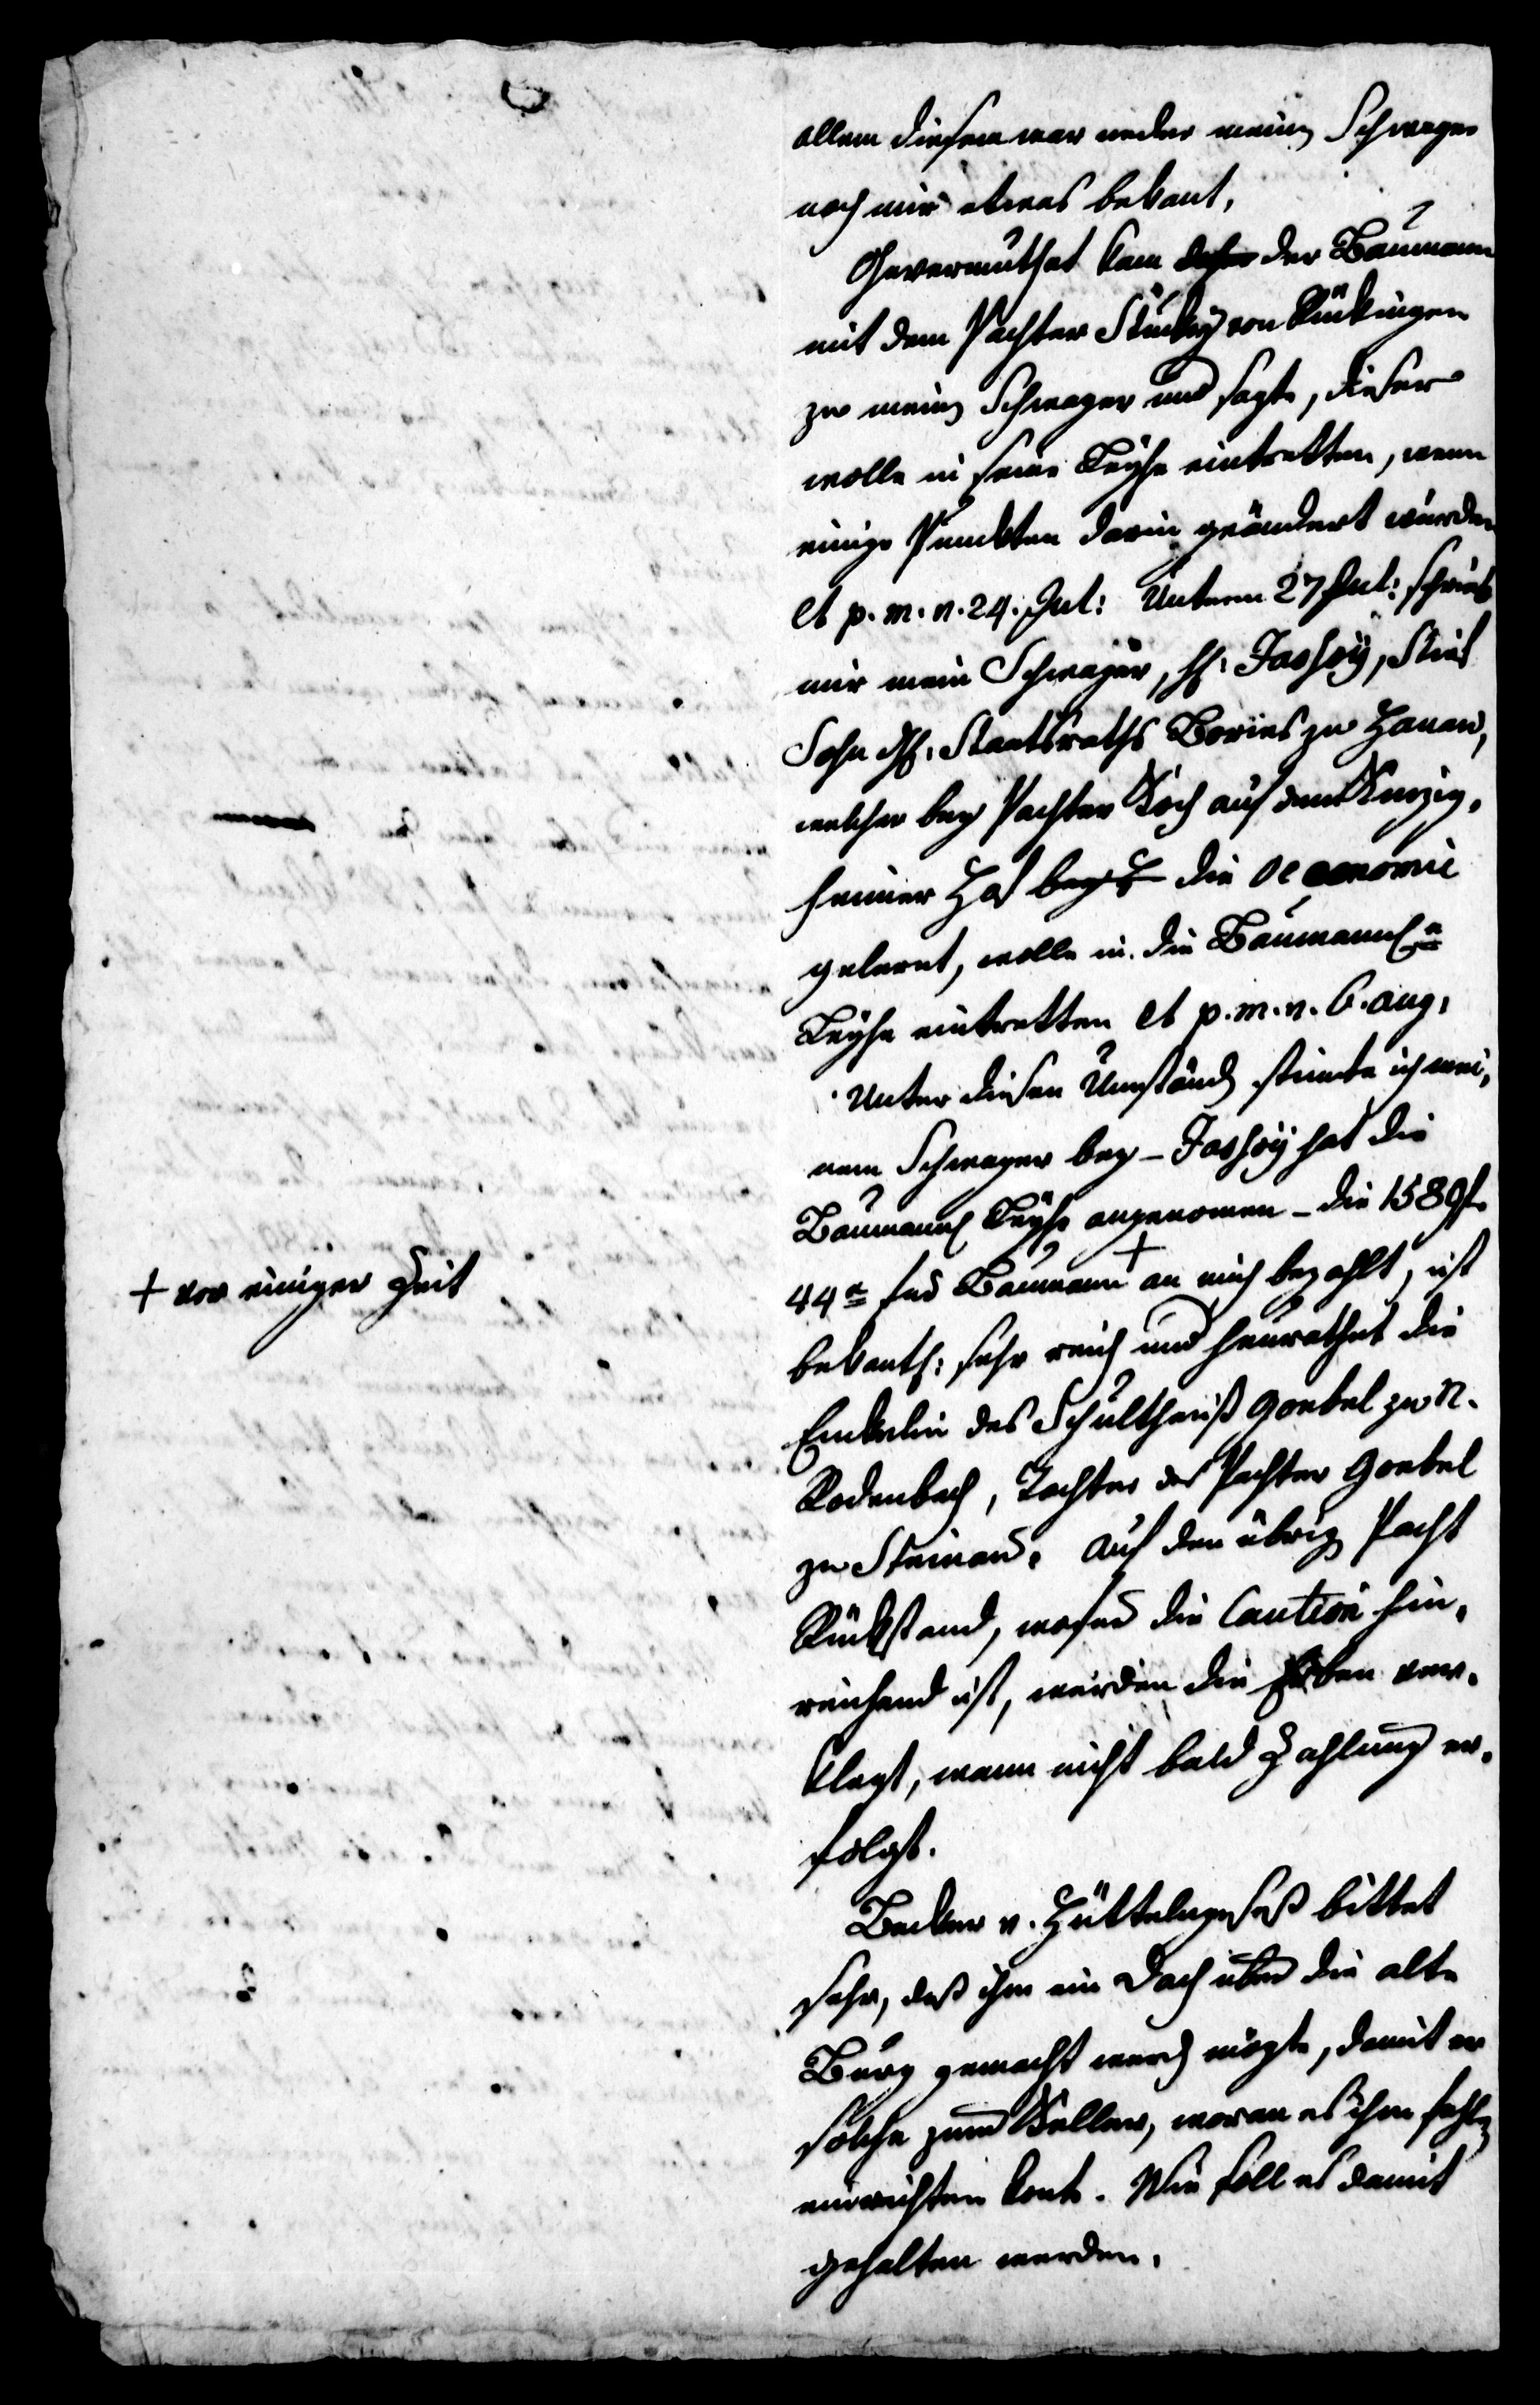 allem diesem war weder meinem Schwager
noch mir etwas bekant,
Ohnvermuthet kam der Baumann
mit dem Pachter Stucky von Rückingen
zu meinem Schwager und sagte, dieser
wolle in seine Leyhe eintretten, wenn
einige Puncten darin geändert würden
et p. m. v. 24. Jul: Unterm 27 Jul: schrieb
mir mein Schwager, H: Jassoÿ, Stief
Sohn H: Staatsraths Bories zu Hanau,
welcher bey Pachter Koch auf dem Kinzig,
heimer Hof die Oeconomie
gelernt, wolle in die Baumannsche
Leyhe eintretten et p. m. v. 6. aug.
Unter diesen Umständen stimte ich mei,
nem Schwager bey – Jassoÿ hat die
Baumannsche Leyhe angenomen – die 1589 f
44 x hat Baumann + an mich bezahlt, ist
bekantl: sehr reich und heurathet die
Enkelin des Schultheiß Goebel zu N.
Rodenbach, Tochter des Pachter Goebel
zu Steinau. Auf den übrigen Pacht
Rückstand, wofür die Caution hin,
reichend ist, werden die Erben ver,
klagt, wenn nicht bald Zahlung er,
folgt.
Becker v. Hüttelngesäß bittet
sehr, daß ihm ein Dach über die alte
Burg gemacht werden mögte, damit er
solche zum Keller, woran es ihm fehle,
einrichten könte. Wie soll es damit
gehalten werden.
+ vor einiger Zeit